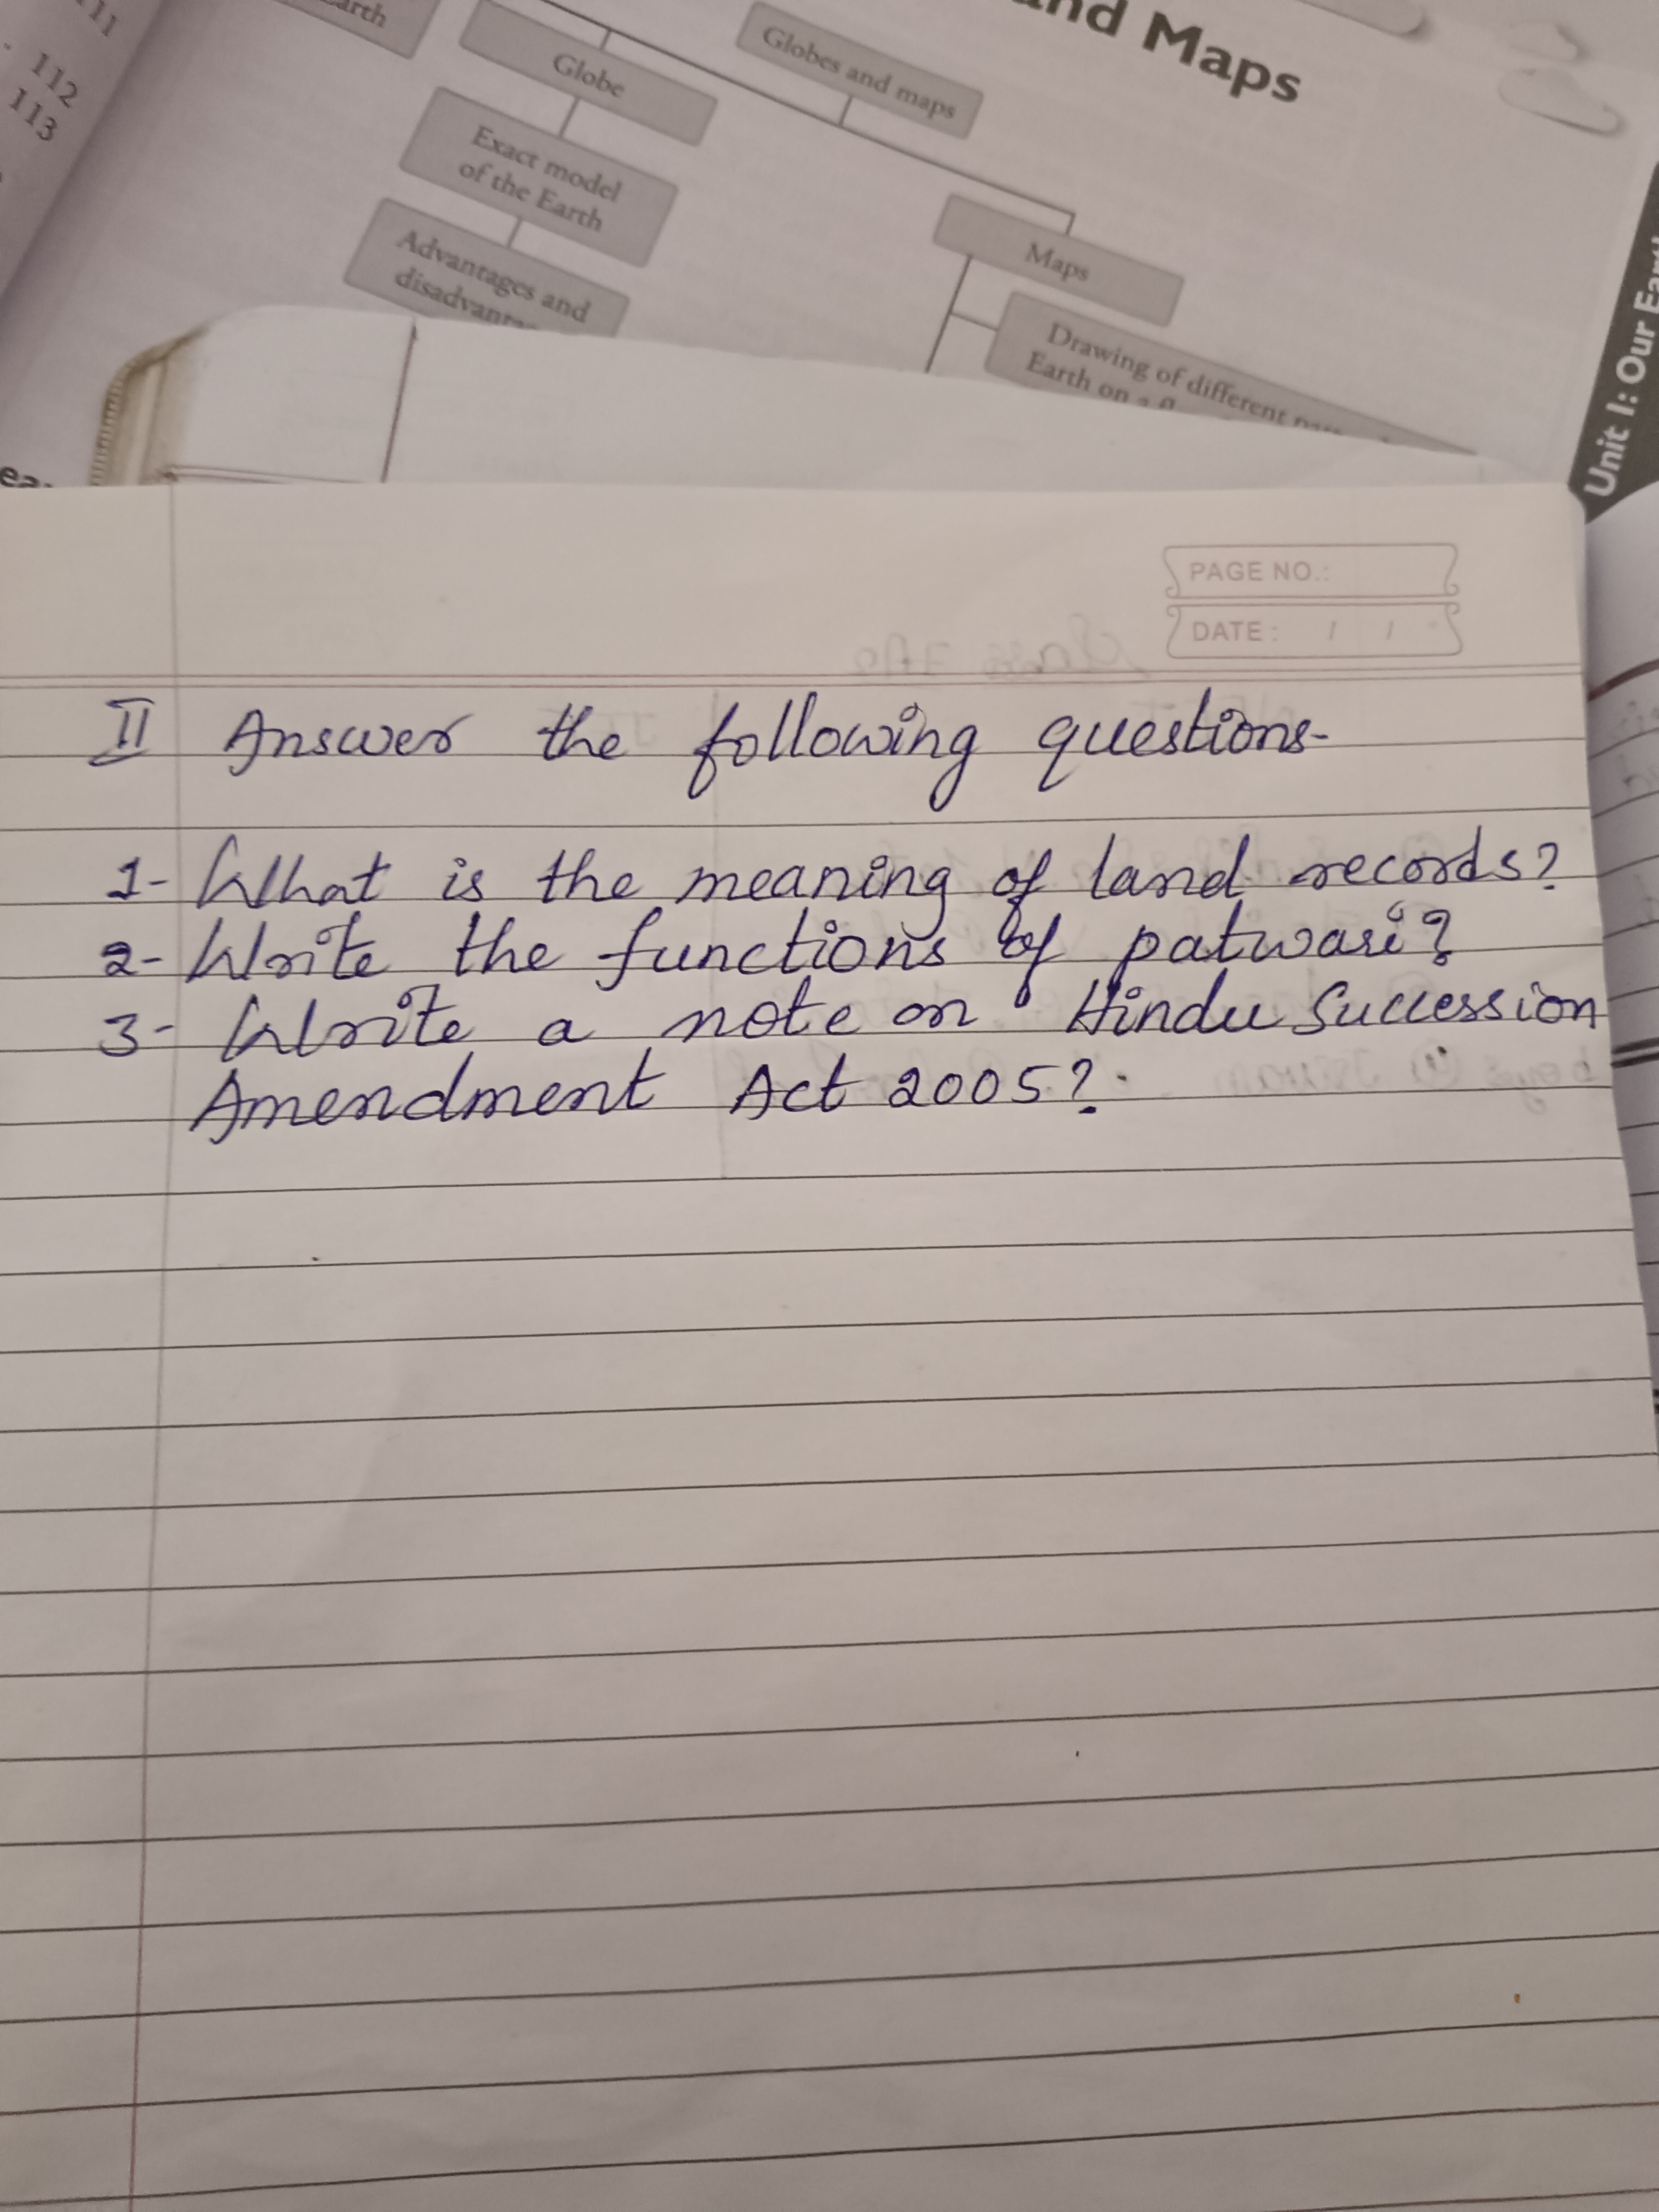 111
112
113
arth
Globe
Globes and maps
and Maps
Exact model
of the Earth
Advantages and
Maps
Drawing of different
Earth on a
Unit 1: Our
PAGE NO.:
DATE: / /
II Answer the following questions-
1- What is the meaning of land records?
2- Write the functions of patwari?
3- Write a note on Hindu Succession
Amendment Act 2005?